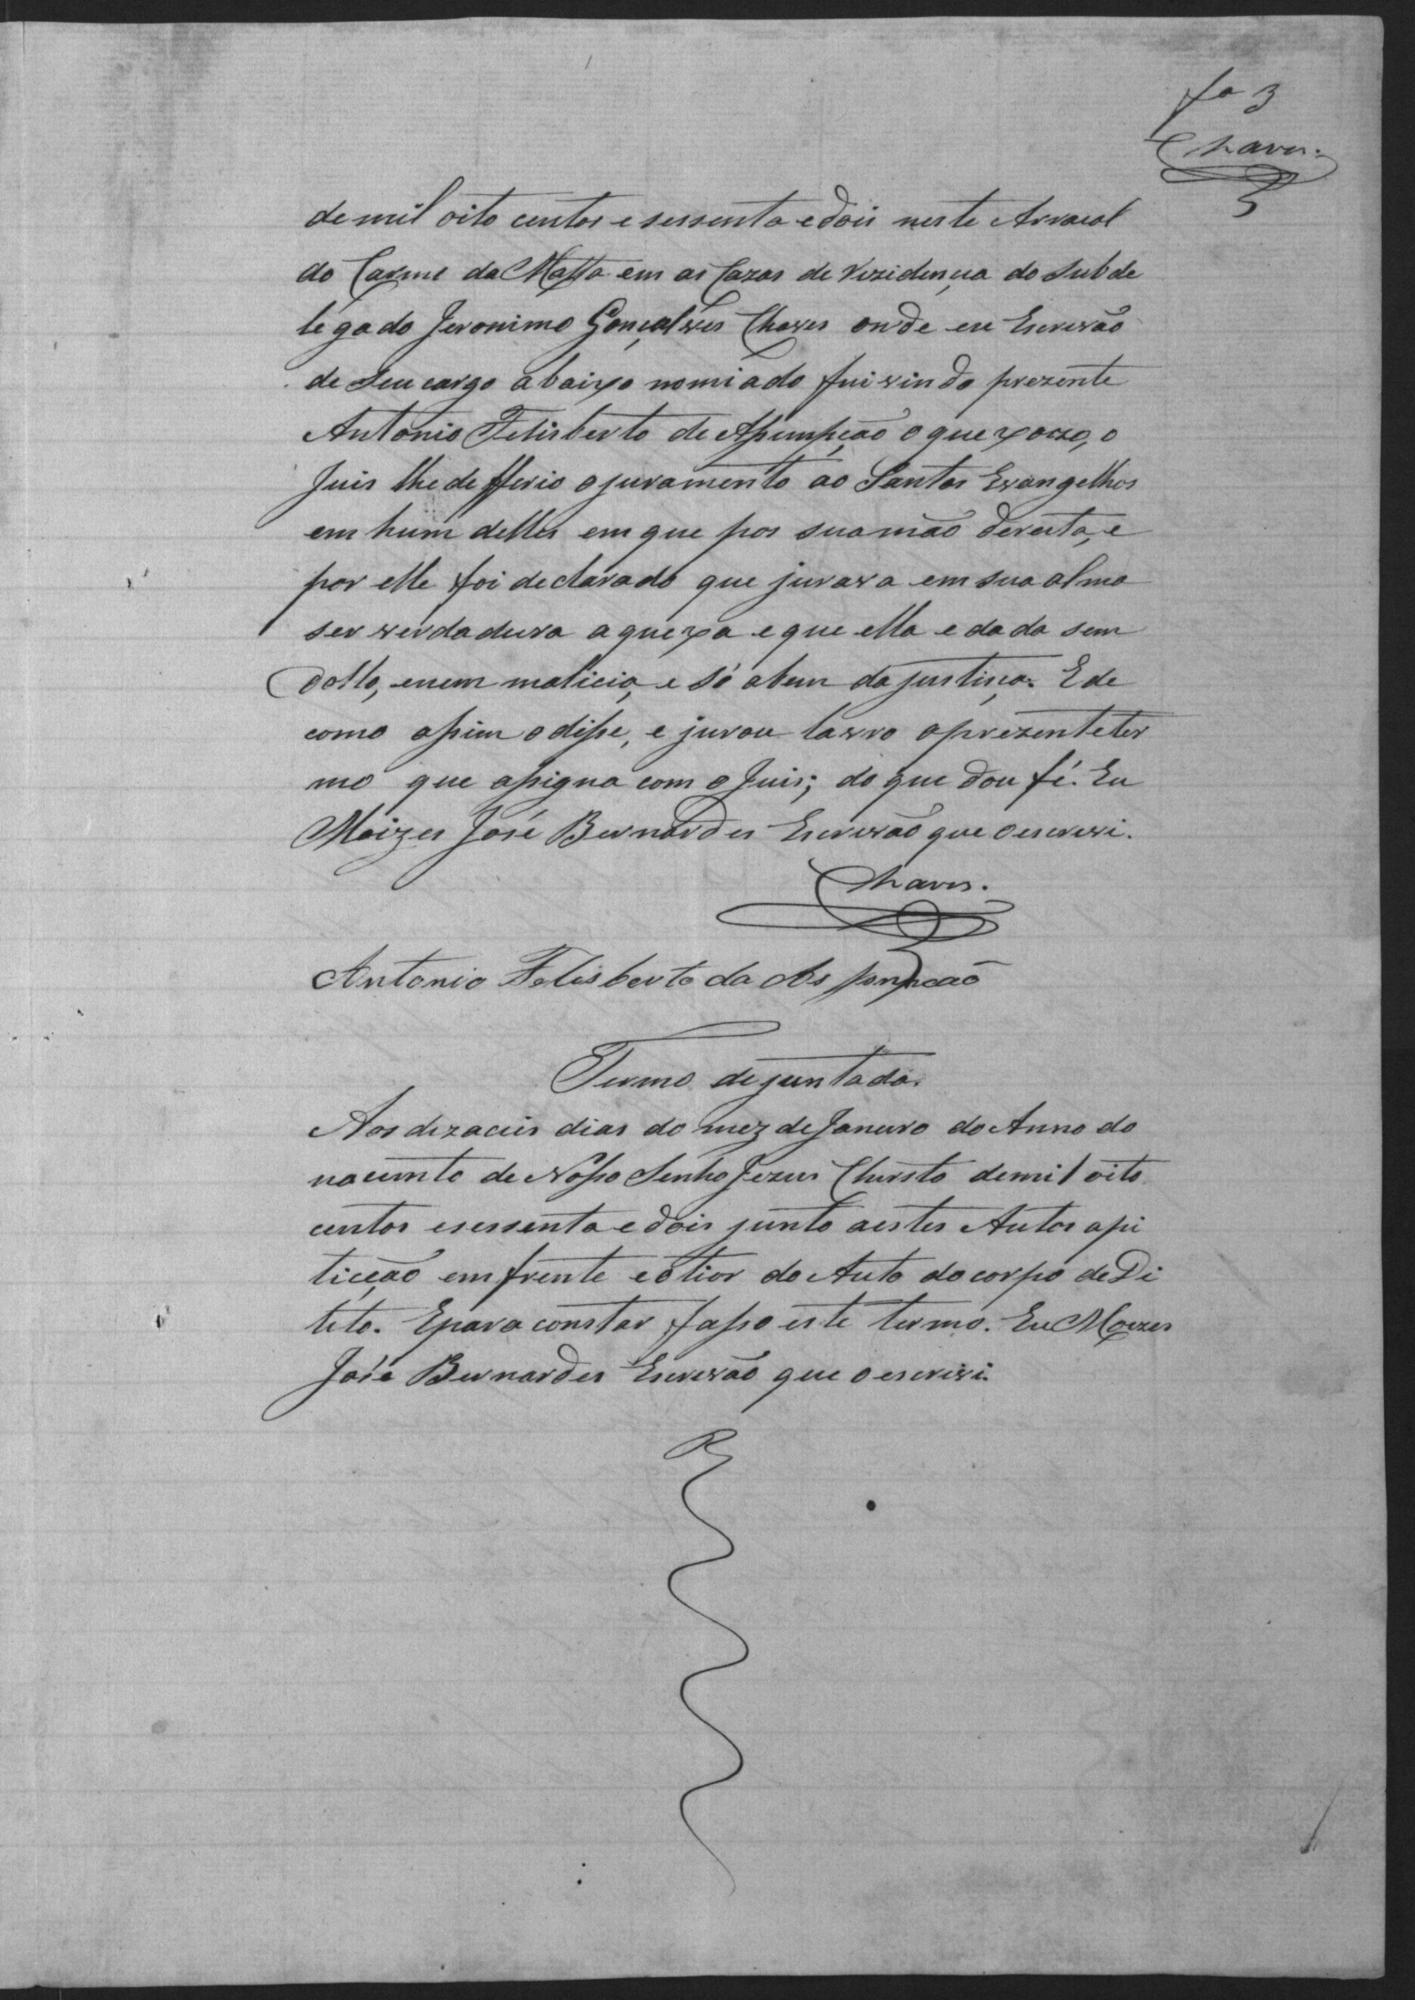 fo 3
Chaves.
de mil oito centos e sessenta e dois neste Arraial
do Carmo da Matta em as Cazas de rezidencia do Subde
legado Jeronimo Gonçalves Chaves onde eu Escrivão
de seu cargo abaixo nomiado fui vindo prezente
Antonio Felisberto de Assumpção o quexozo, o
Juis lhe defferio o juramento ao Santos Evangelhos
em hum delles em que pos sua mão dereita, e
por elle foi declarado que jurava em sua alma
ser verdadeira a quexa e que ella e dada sem
dollo, e nem malicia, e só abem da justiça. E de
como assim o disse, e jurou lavro o prezente ter
mo que assigna com o Juis; do que dou fé. Eu
Moizes José Bernardes Escrivão que o escrevi.
Chaves.
Antonio Felisberto da Assumpcaõ
Termo de juntada.
Aos dezaceis dias do mez de Janeiro do Anno do
nacimto de Nosso Senho Jezus Christo de mil oito
centos e sessenta e dois junto a estes Autos a pi
ticção em frente e o tior do Auto do corpo de Di
lito. E para constar fasso este termo. Eu Moizes
José Bernardes Escrivão que o escrivi.